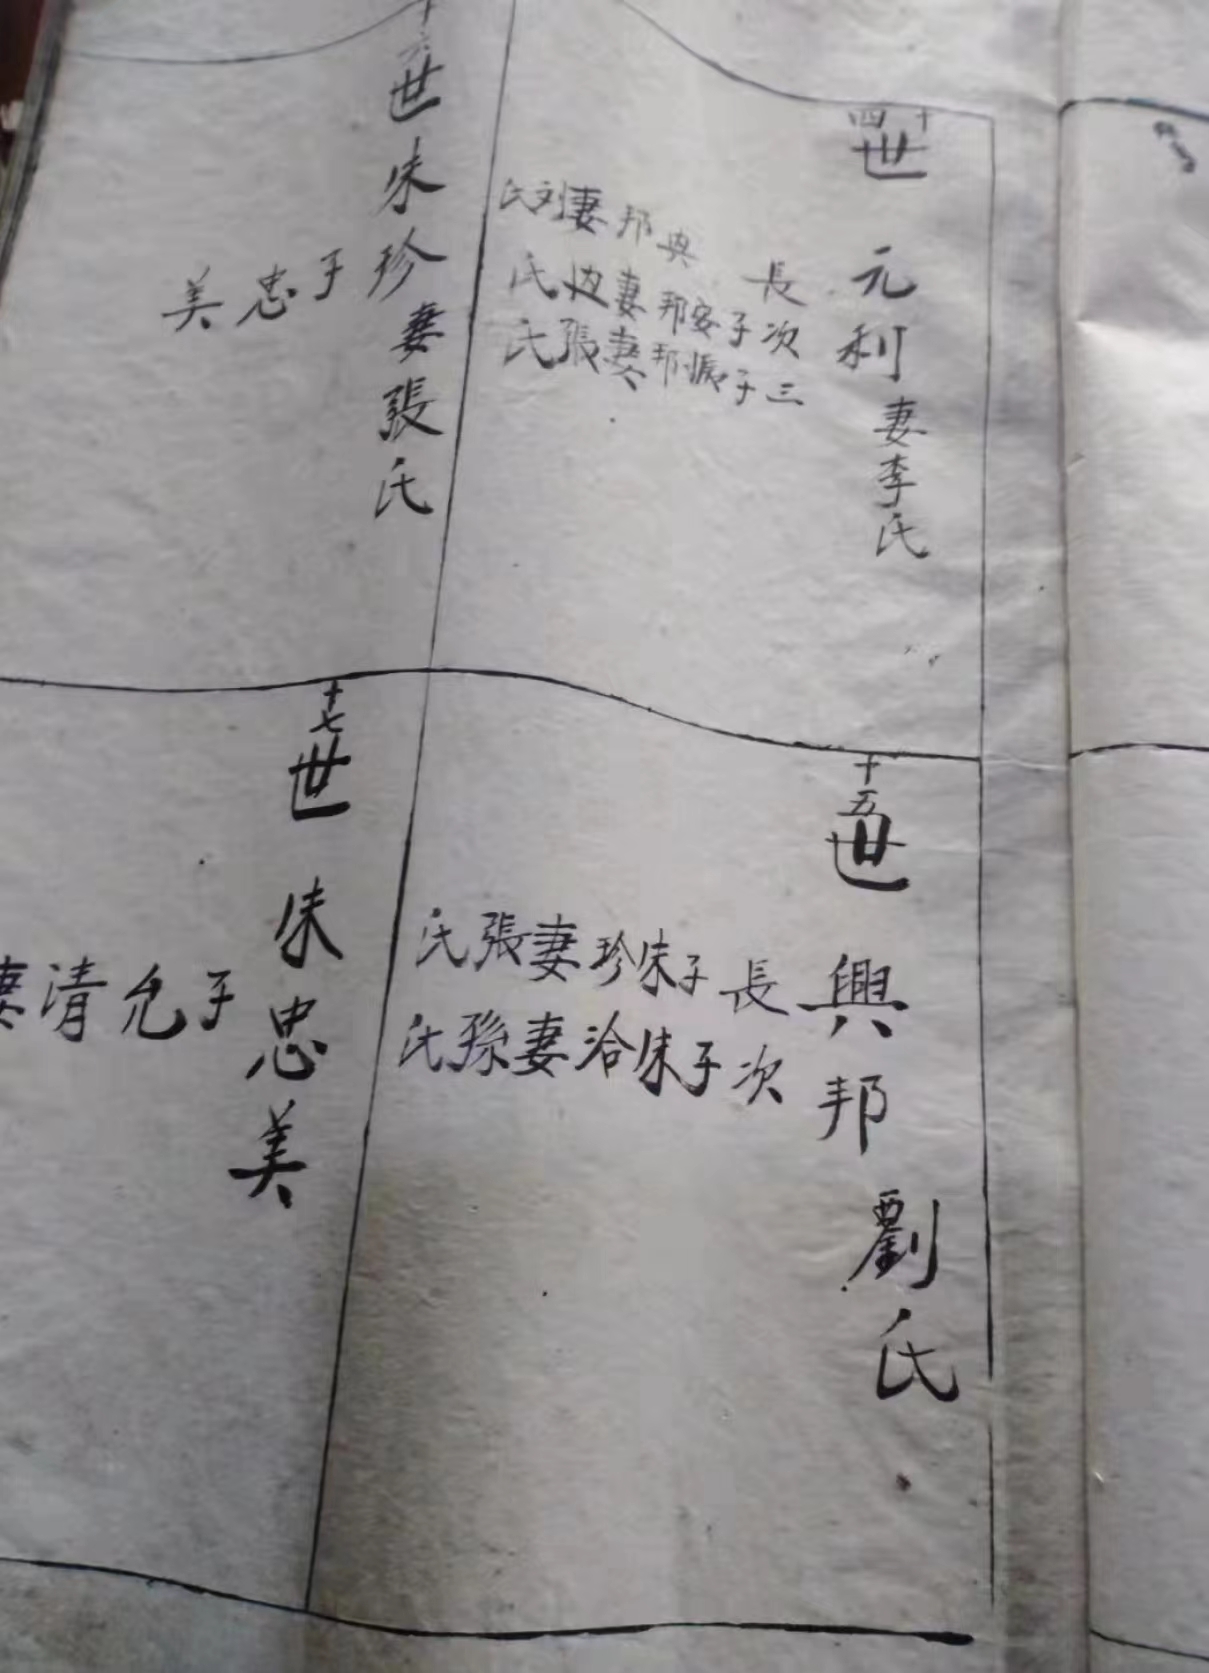 十四世 元利 妻李氏
長 興邦 妻刘氏
次子 安邦 妻氏
三子 振邦 妻張氏
十五世 興邦 劉氏
長子朱珍 妻張氏
次子朱洽 妻孫氏
十六世 朱珍 妻張氏
子忠美
十七世 朱忠美
子允清 妻